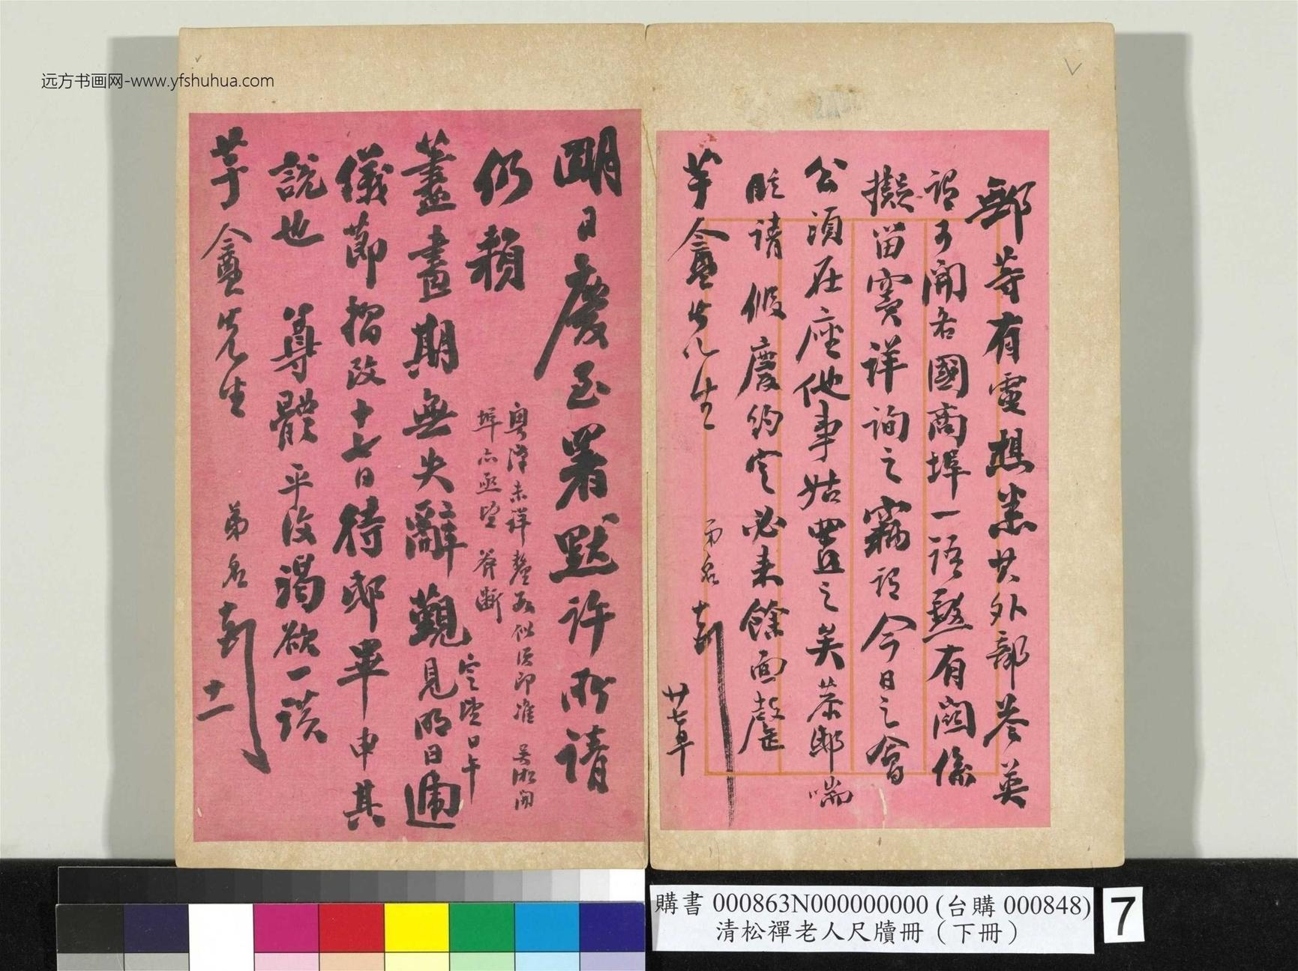 远方书画网-www.yfshuhua.com
鄭等有電想悉其外部答英
謂了開各國商埠一語甚有關係
擬留竇詳詢之竊謂今日之會
公須在座他事姑置之矣榮鄉喘
請假慶約定必來餘面罄
芋盦先生
弟名 廿七早
明日慶至署默許所請
仍賴
粵漢未詳 似須即准 吳淞開
埠亦亟望 斧斷
藎畫期無失辭覲見明日遞
定望日午
儀節摺改十七日待邸畢申其
說也 尊體平復渴欲一談
芋盦先生
弟名 十一
購書 000863N000000000 (台購 000848)
清松禪老人尺牘冊（下冊）
7